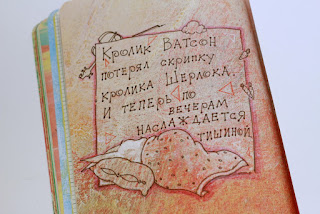 Кролик Ватсон
потерял скрипку
кролика Шерлока.
И теперь по
вечерам
наслаждается
тишиной